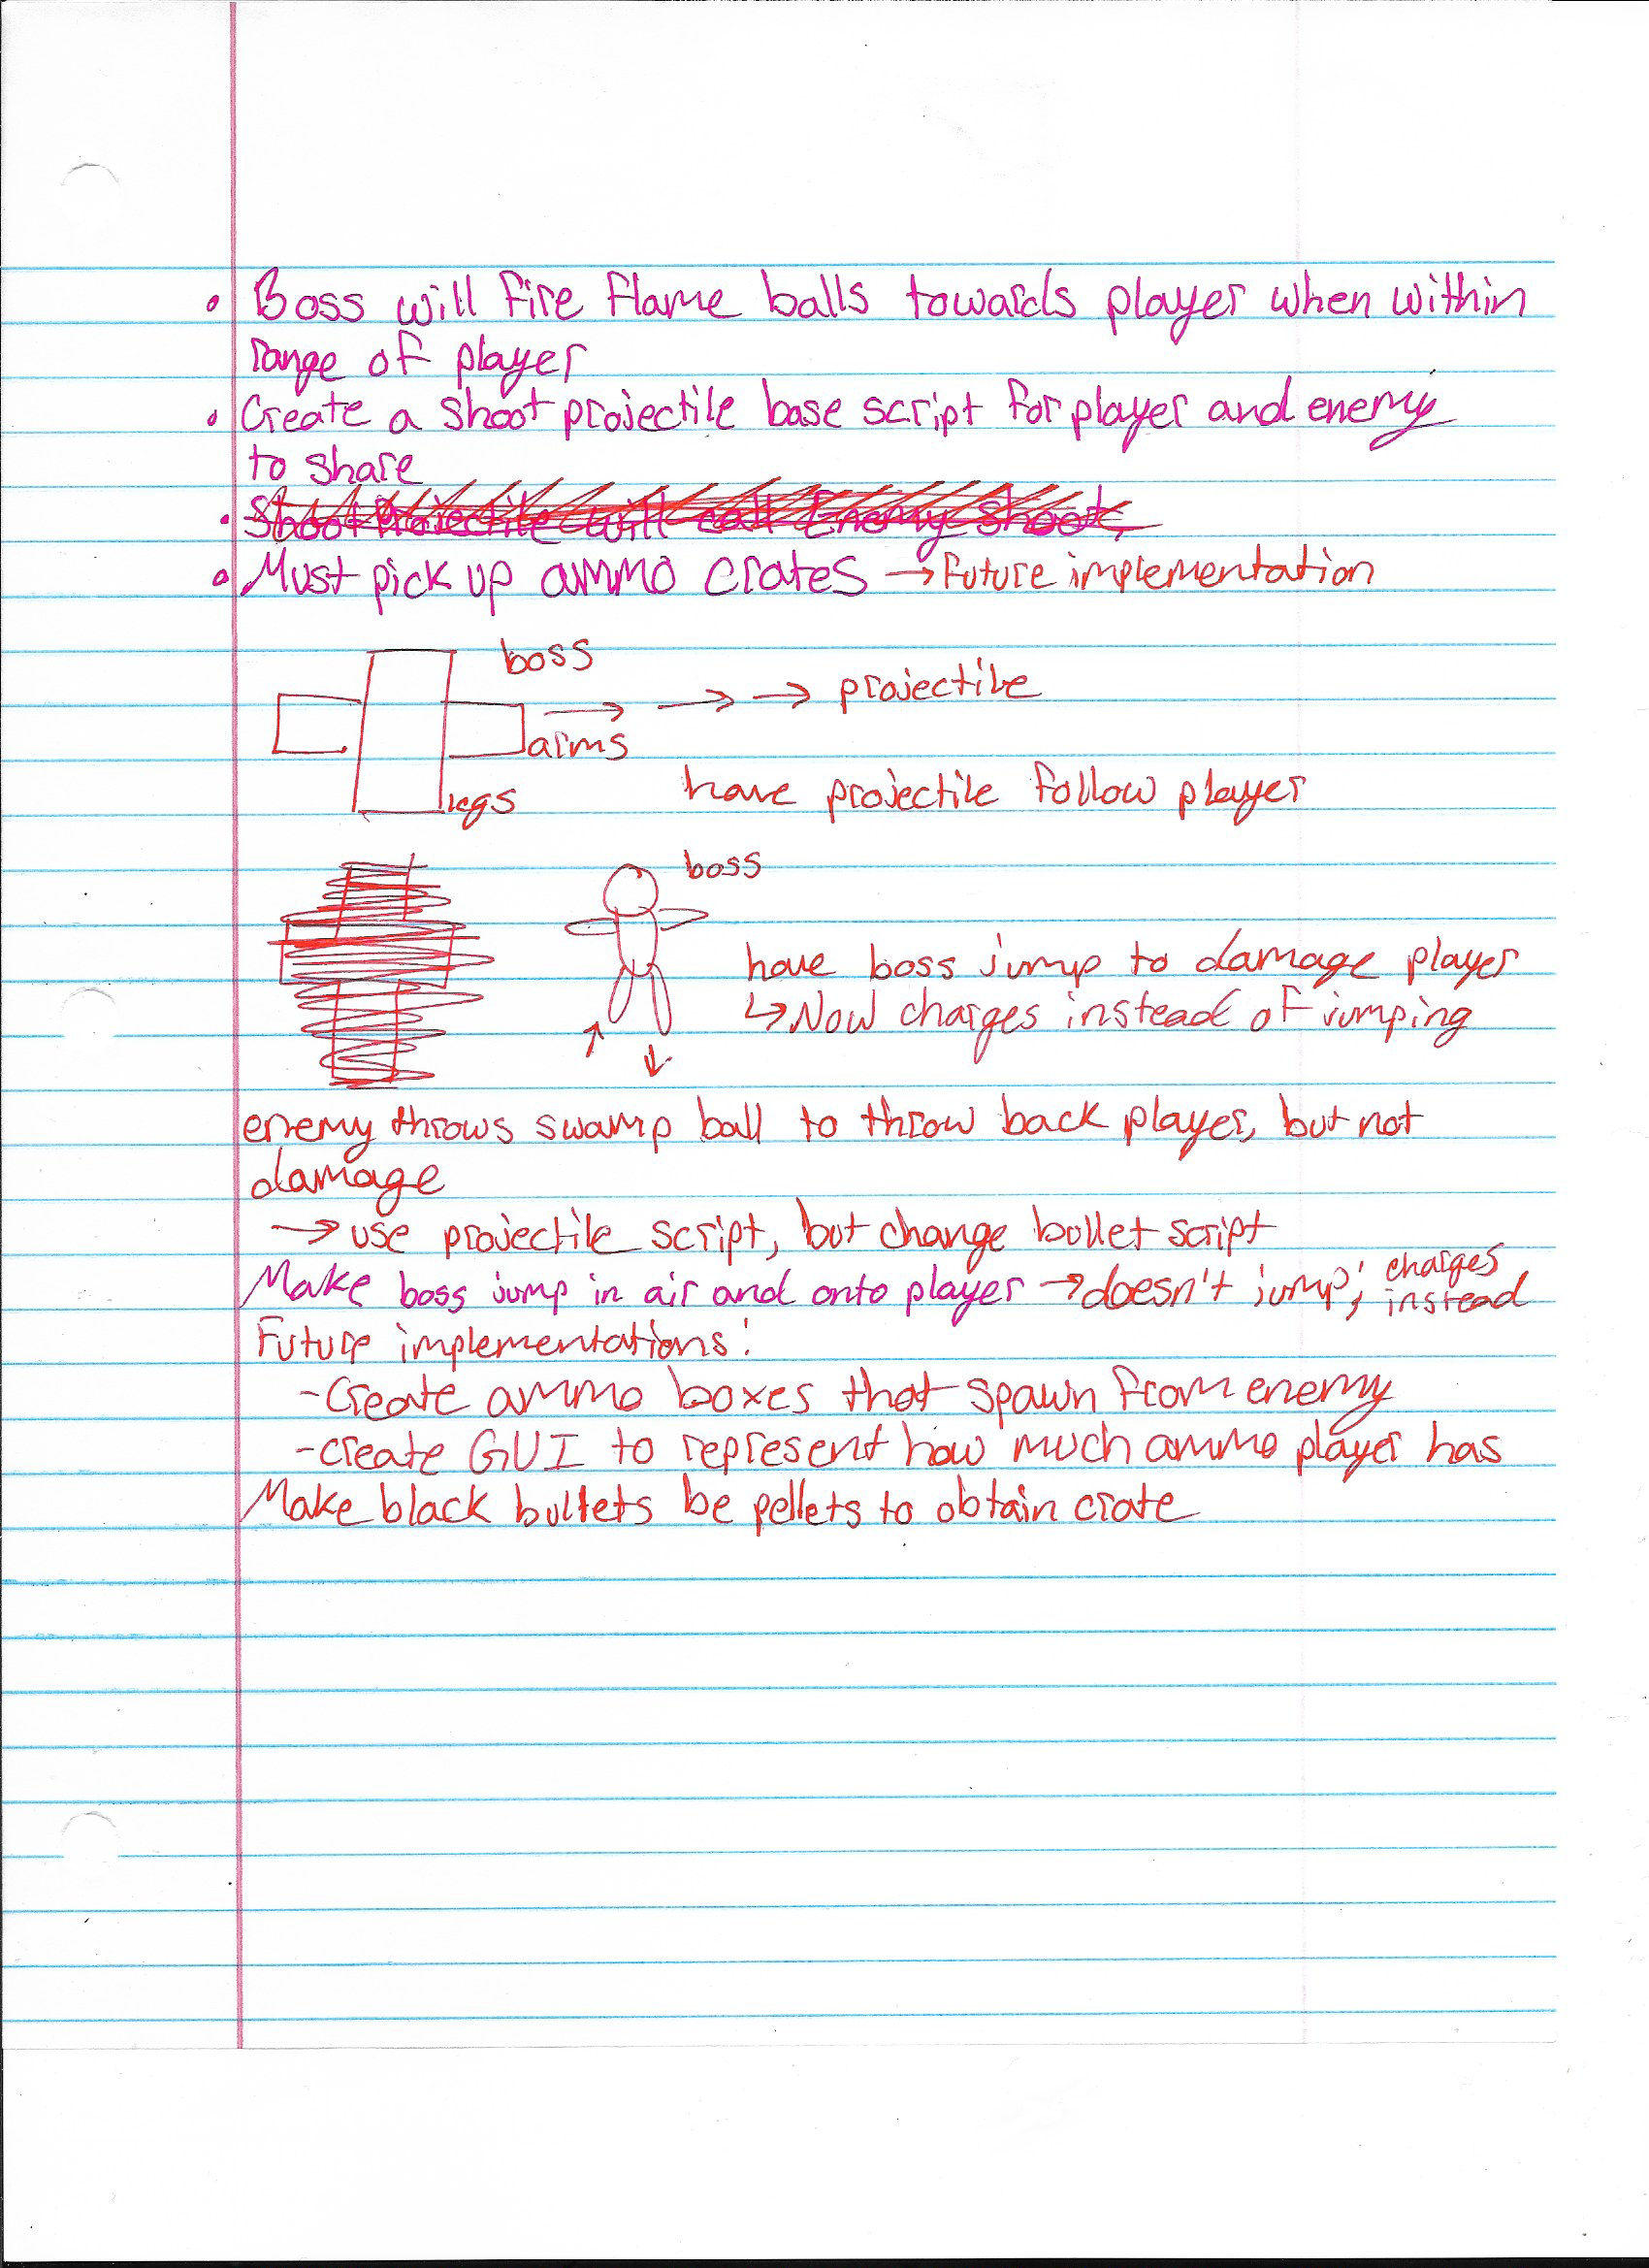 • Boss will fire flame balls towards player when within
range of player
• Create a shoot projectile base script for player and enemy
to share
• Shoot Projectile will call Enemy Shoot,
• Must pick up ammo crates → Future implementation
boss
→ → → projectile
arms
legs
have projectile follow player
boss
have boss jump to damage player
↳ Now charges instead of jumping
enemy throws swamp ball to throw back player, but not
damage
→ use projectile script, but change bullet script
Make boss jump in air and onto player → doesn't jump; charges
instead
Future implementations:
- Create ammo boxes that spawn from enemy
- create GUI to represent how much ammo player has
Make black bullets be pellets to obtain crate